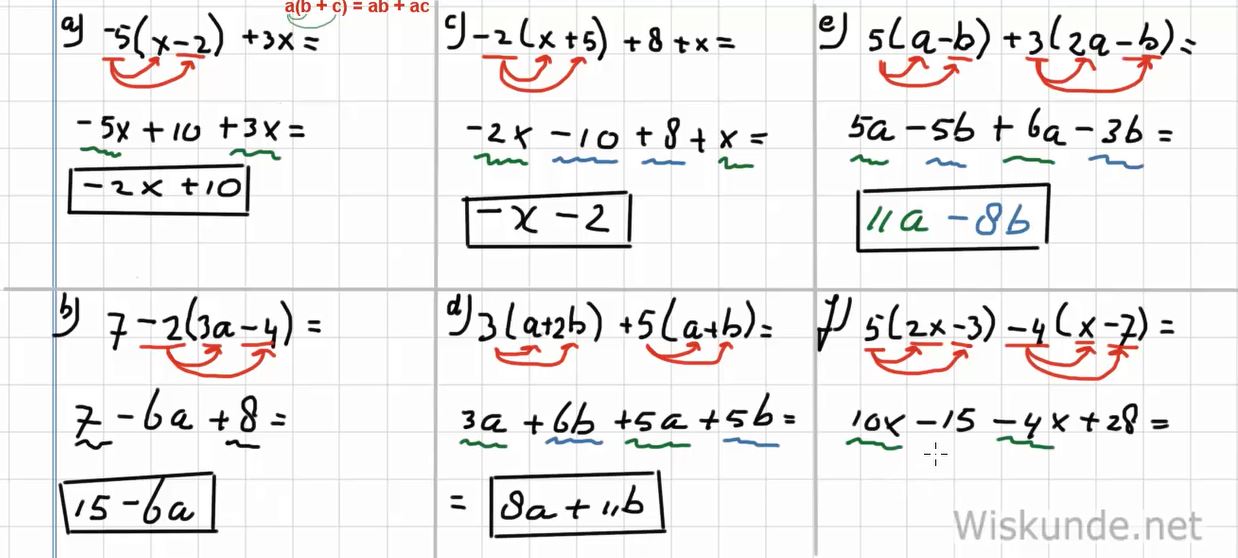 a(b + c) = ab + ac
a) -5(x-2) +3x=
-5x+10 +3x=
-2x +10
b) 7-2(3a-4)=
7-6a+8=
15-6a
c) -2(x+5)+8+x=
-2x -10 +8+x=
-x-2
d) 3(a+2b)+5(a+b)=
3a+6b+5a+5b=
= 8a+11b
e) 5(a-b)+3(2a-b)=
5a-5b+6a-3b=
11a-8b
f) 5(2x-3)-4(x-7)=
10x-15-4x+28=
Wiskunde.net